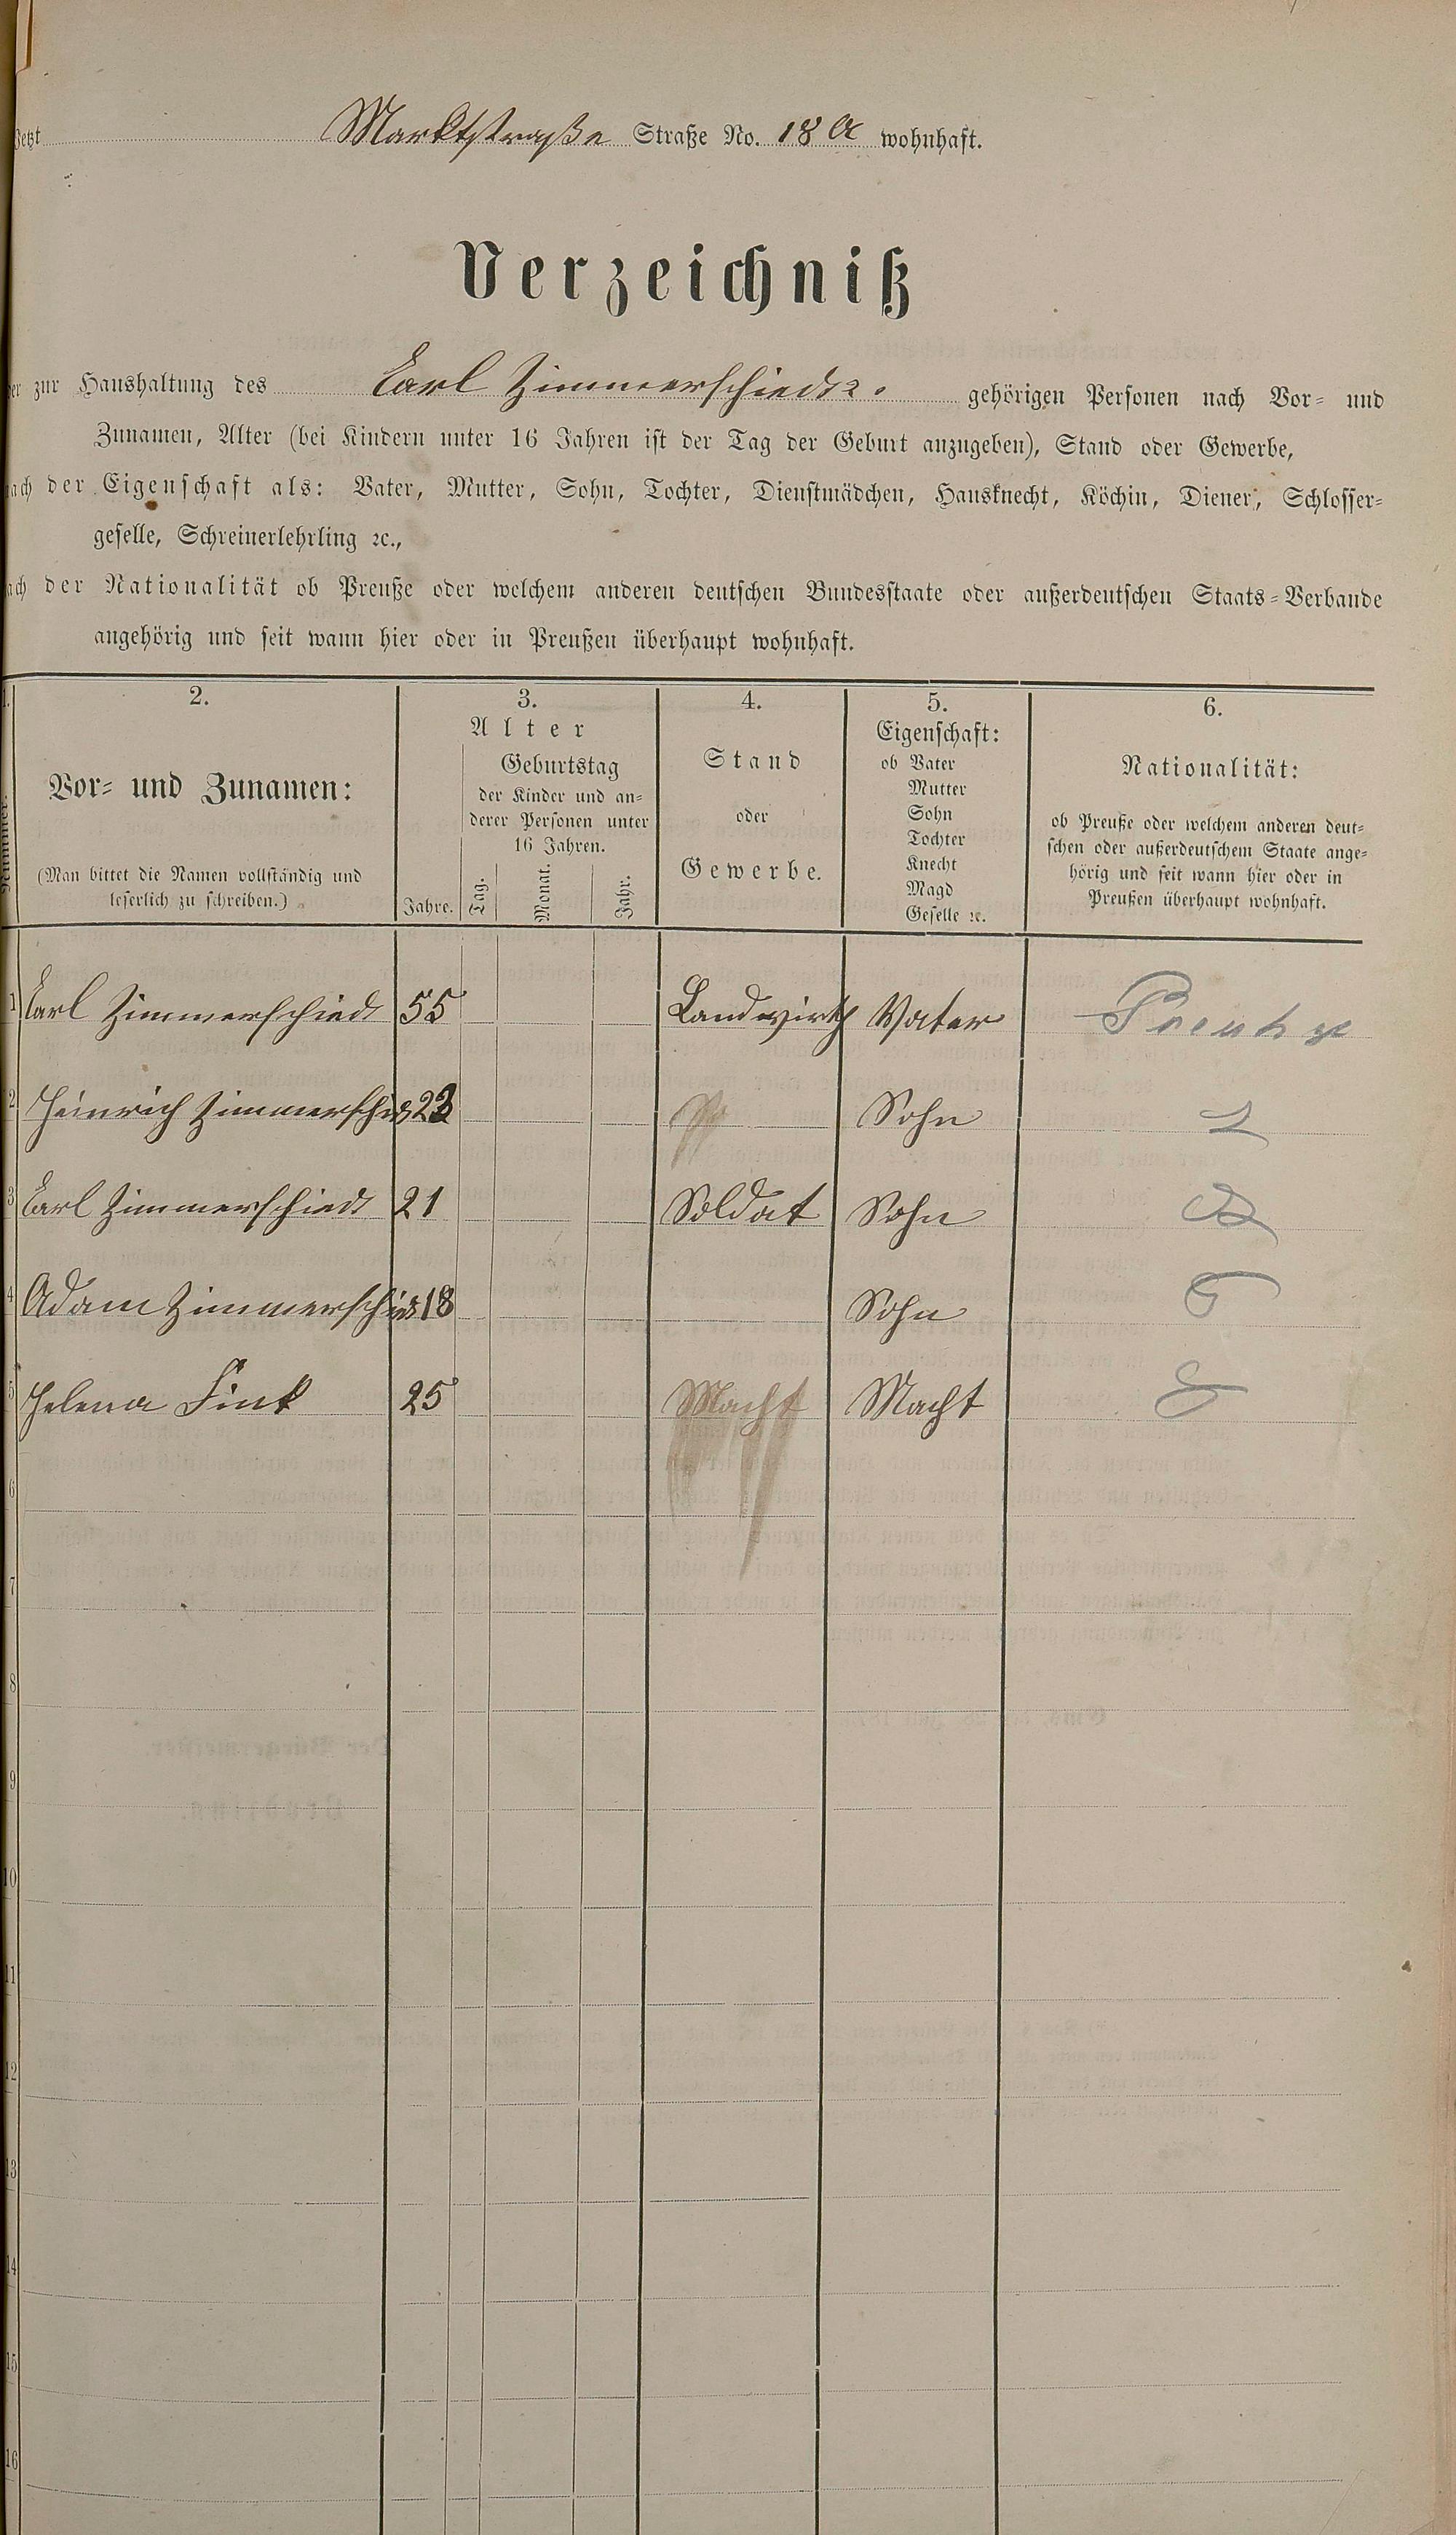 Jetzt Marktstraße Straße No. 18 a wohnhaft.
Verzeichniß
der zur Haushaltung des Carl Zimmerschied gehörigen Personen nach Vor- und
Zunamen, Alter (bei Kindern unter 16 Jahren ist der Tag der Geburt anzugeben), Stand oder Gewerbe,
nach der Eigenschaft als: Vater, Mutter, Sohn, Tochter, Dienstmädchen, Hausknecht, Köchin, Diener, Schlosser-
geselle, Schreinerlehrling ꝛc.,
nach der Nationalität ob Preuße oder welchem anderen deutschen Bundesstaate oder außerdeutschen Staats-Verbande
angehörig und seit wann hier oder in Preußen überhaupt wohnhaft.
1. 2. 3. 4. 5. 6.
Nummer.
Vor- und Zunamen:
(Man bittet die Namen vollständig und
leserlich zu schreiben.)
Alter
Jahre.
Geburtstag
der Kinder und an-
derer Personen unter
16 Jahren.
Tag. Monat. Jahr.
Stand
oder
Gewerbe.
Eigenschaft:
ob Vater
Mutter
Sohn
Tochter
Knecht
Magd
Geselle ꝛc.
Nationalität:
ob Preuße oder welchem anderen deut-
schen oder außerdeutschem Staate ange-
hörig und seit wann hier oder in
Preußen überhaupt wohnhaft.
1 Carl Zimmerschied 55 Landwirth Vater Preuße
2 Heinrich Zimmerschied 23 So Sohn
3 Carl Zimmerschied 21 Soldat Sohn
4 Adam Zimmerschied 18 Sohn
5 Helena Fink 25 Macht Macht
6
7
8
9
10
11
12
13
14
15
16